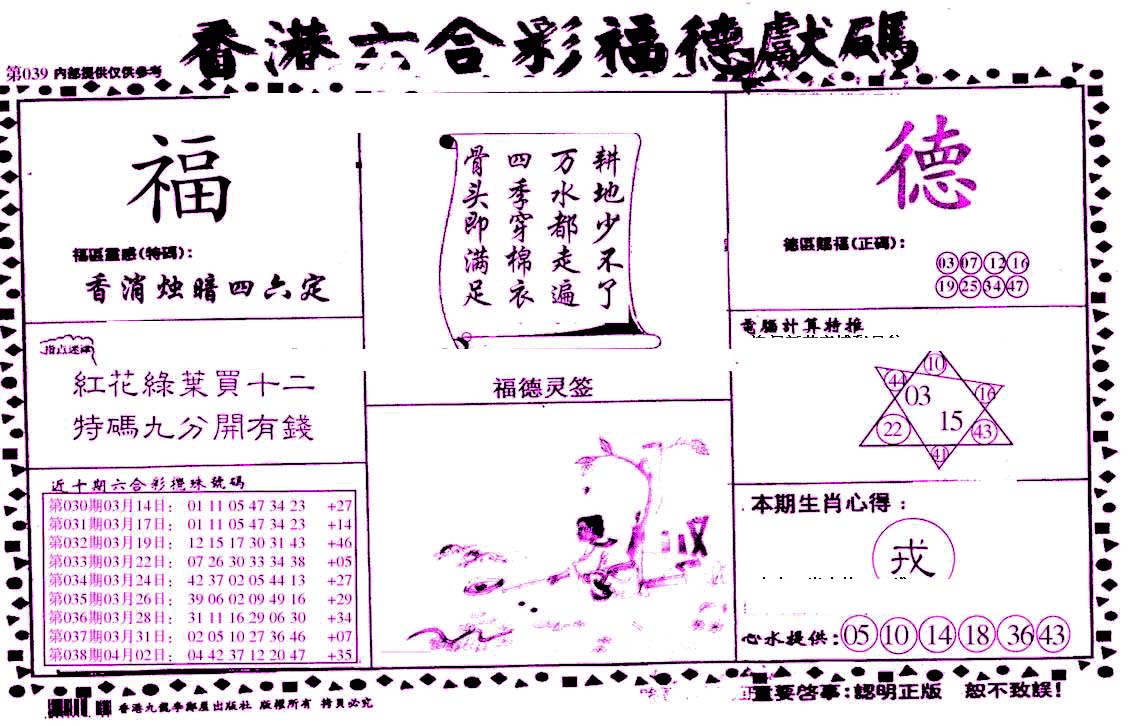 香港六合彩福德獻碼
第039 內部提供仅供参考
福
福區靈感(特碼):
香消烛暗四六定
指点迷津
紅花綠葉買十二
特碼九分開有錢
近十期六合彩攪珠號碼
第030期03月14日: 01 11 05 47 34 23 +27
第031期03月17日: 01 11 05 47 34 23 +14
第032期03月19日: 12 15 17 30 31 43 +46
第033期03月22日: 07 26 30 33 34 38 +05
第034期03月24日: 42 37 02 05 44 13 +27
第035期03月26日: 39 06 02 09 49 16 +29
第036期03月28日: 31 11 16 29 06 30 +34
第037期03月31日: 02 05 10 27 36 46 +07
第038期04月02日: 04 42 37 12 20 47 +35
耕地少不了
万水都走遍
四季穿棉衣
骨头即满足
福德灵签
德
德區賜福(正碼):
03 07 12 16
19 25 34 47
電腦計算特推
10
44 03 16
22 15 43
41
本期生肖心得:
戎
心水提供: 05 10 14 18 36 43
重要啓事:認明正版 恕不致誤!
香港九龍李鄭屋出版社 版權所有 拷貝必究